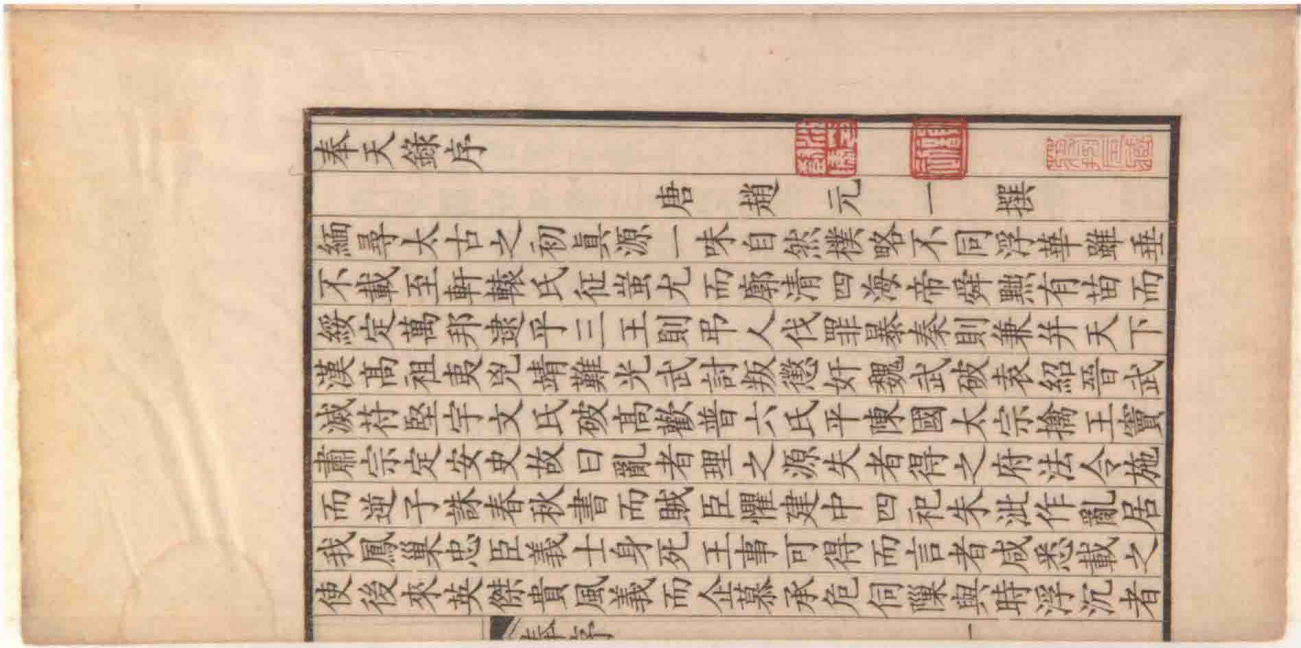 奉天錄序
唐趙元一撰
緬尋太古之初眞源一味自然樸略不同浮華雖垂
不載至軒轅氏征蚩尤而廓清四海帝舜黜有苗而
綏定萬邦逮乎三王則吊人伐罪暴秦則兼并天下
漢高祖夷兇靖難光武討叛懲奸魏武破袁紹晉武
滅苻堅宇文氏破高歡普六氏平陳國太宗擒王竇
肅宗定安史故曰亂者理之源失者得之府法令施
而逆子誅春秋書而賊臣懼建中四祀朱泚作亂居
我鳳巢忠臣義士身死王事可得而言者咸悉載之
使後來英傑貴風義而企慕承危伺隟與時浮沉者
奉序 一